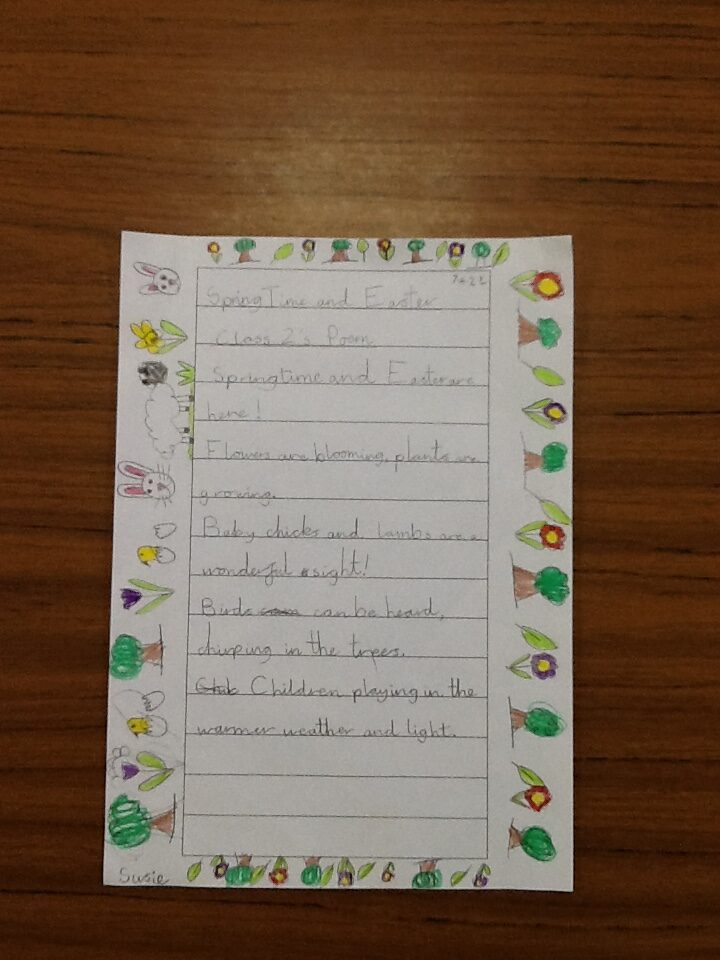 7+22
SpringTime and Easter
Class 2's Poem
Springtime and Easter are
here!
Flowers are blooming, plants are
growing.
Baby chicks and lambs are a
wonderful sight!
Birds can be heard,
chirping in the trees.
Children playing in the
warmer weather and light.
Susie